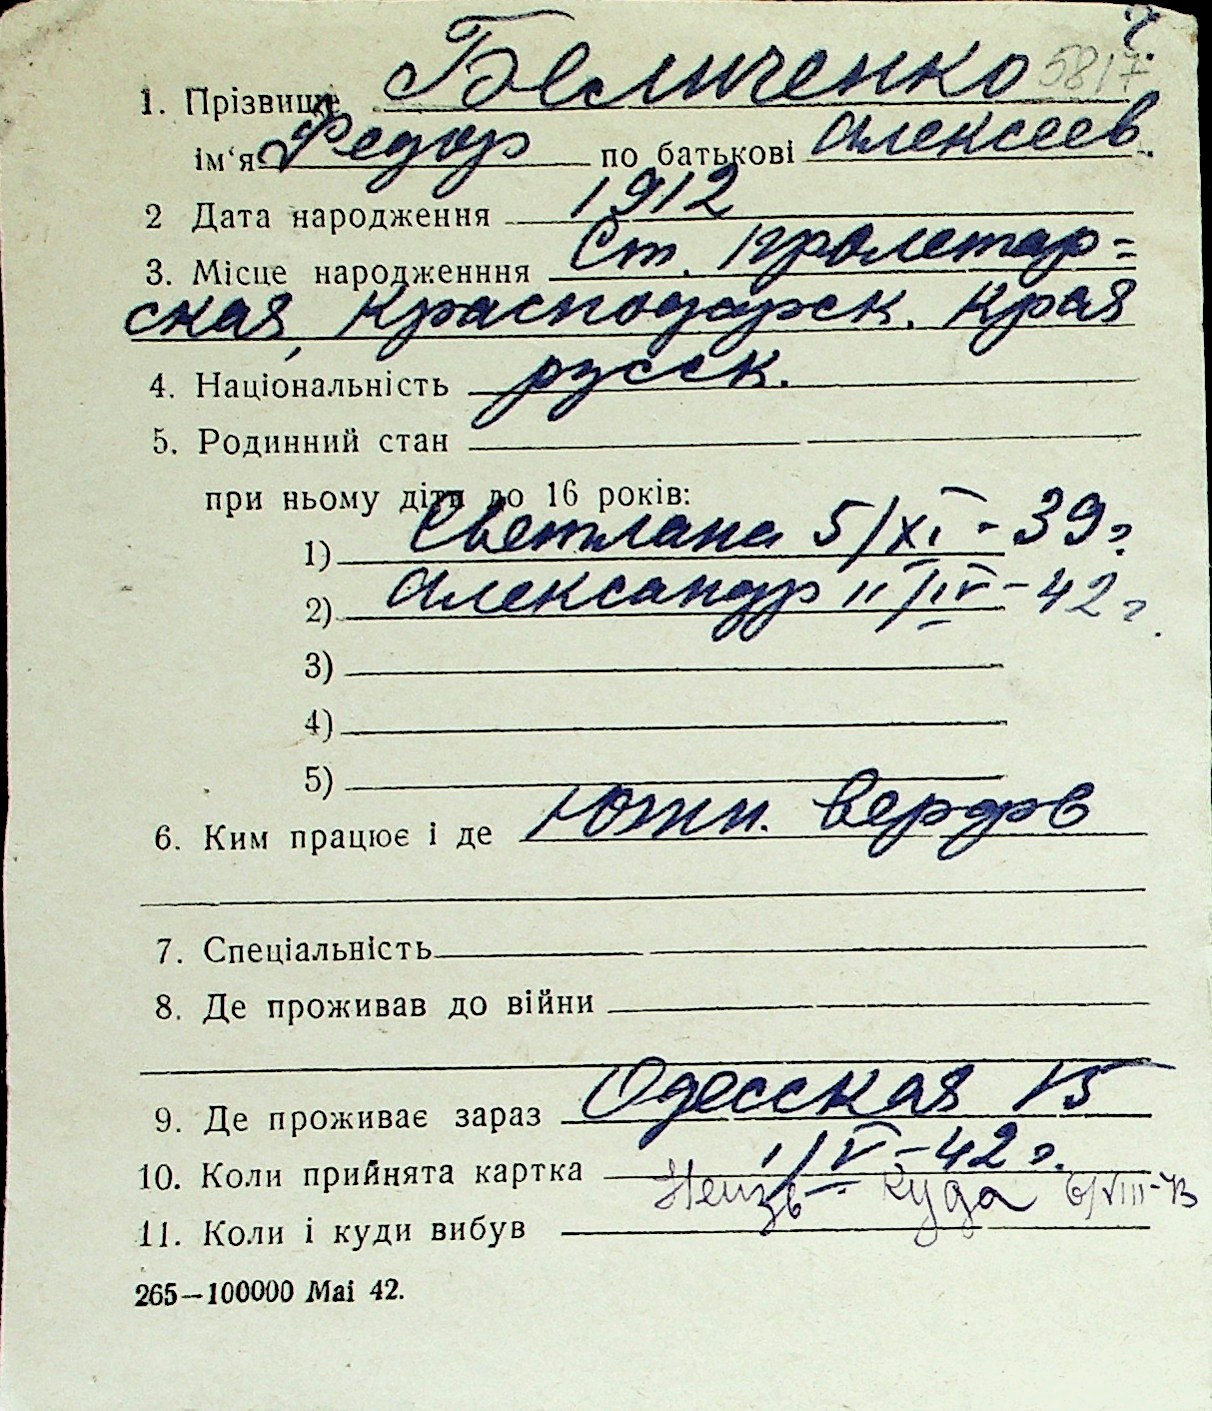 ч.
1. Прізвище Беличенко 5817
ім‘я Федор по батькові Алексеев.
2 Дата народження 1912
3. Місце народженння Ст. Пролетар=
ская, Краснодарск. Края
4. Національність русск.
5. Родинний стан
при ньому діти до 16 років:
1) Светлана 5/XI - 39 г.
2) Александр 11/IV - 42 г.
3)
4)
5)
6. Ким працює і де Южн. верфь
7. Спеціальність
8. Де проживав до війни
9. Де проживає зараз Одесская 15
10. Коли прийнята картка 1/V - 42 г.
11. Коли і куди вибув Неизв. куда 6/VIII-43
265—100000 Mai 42.